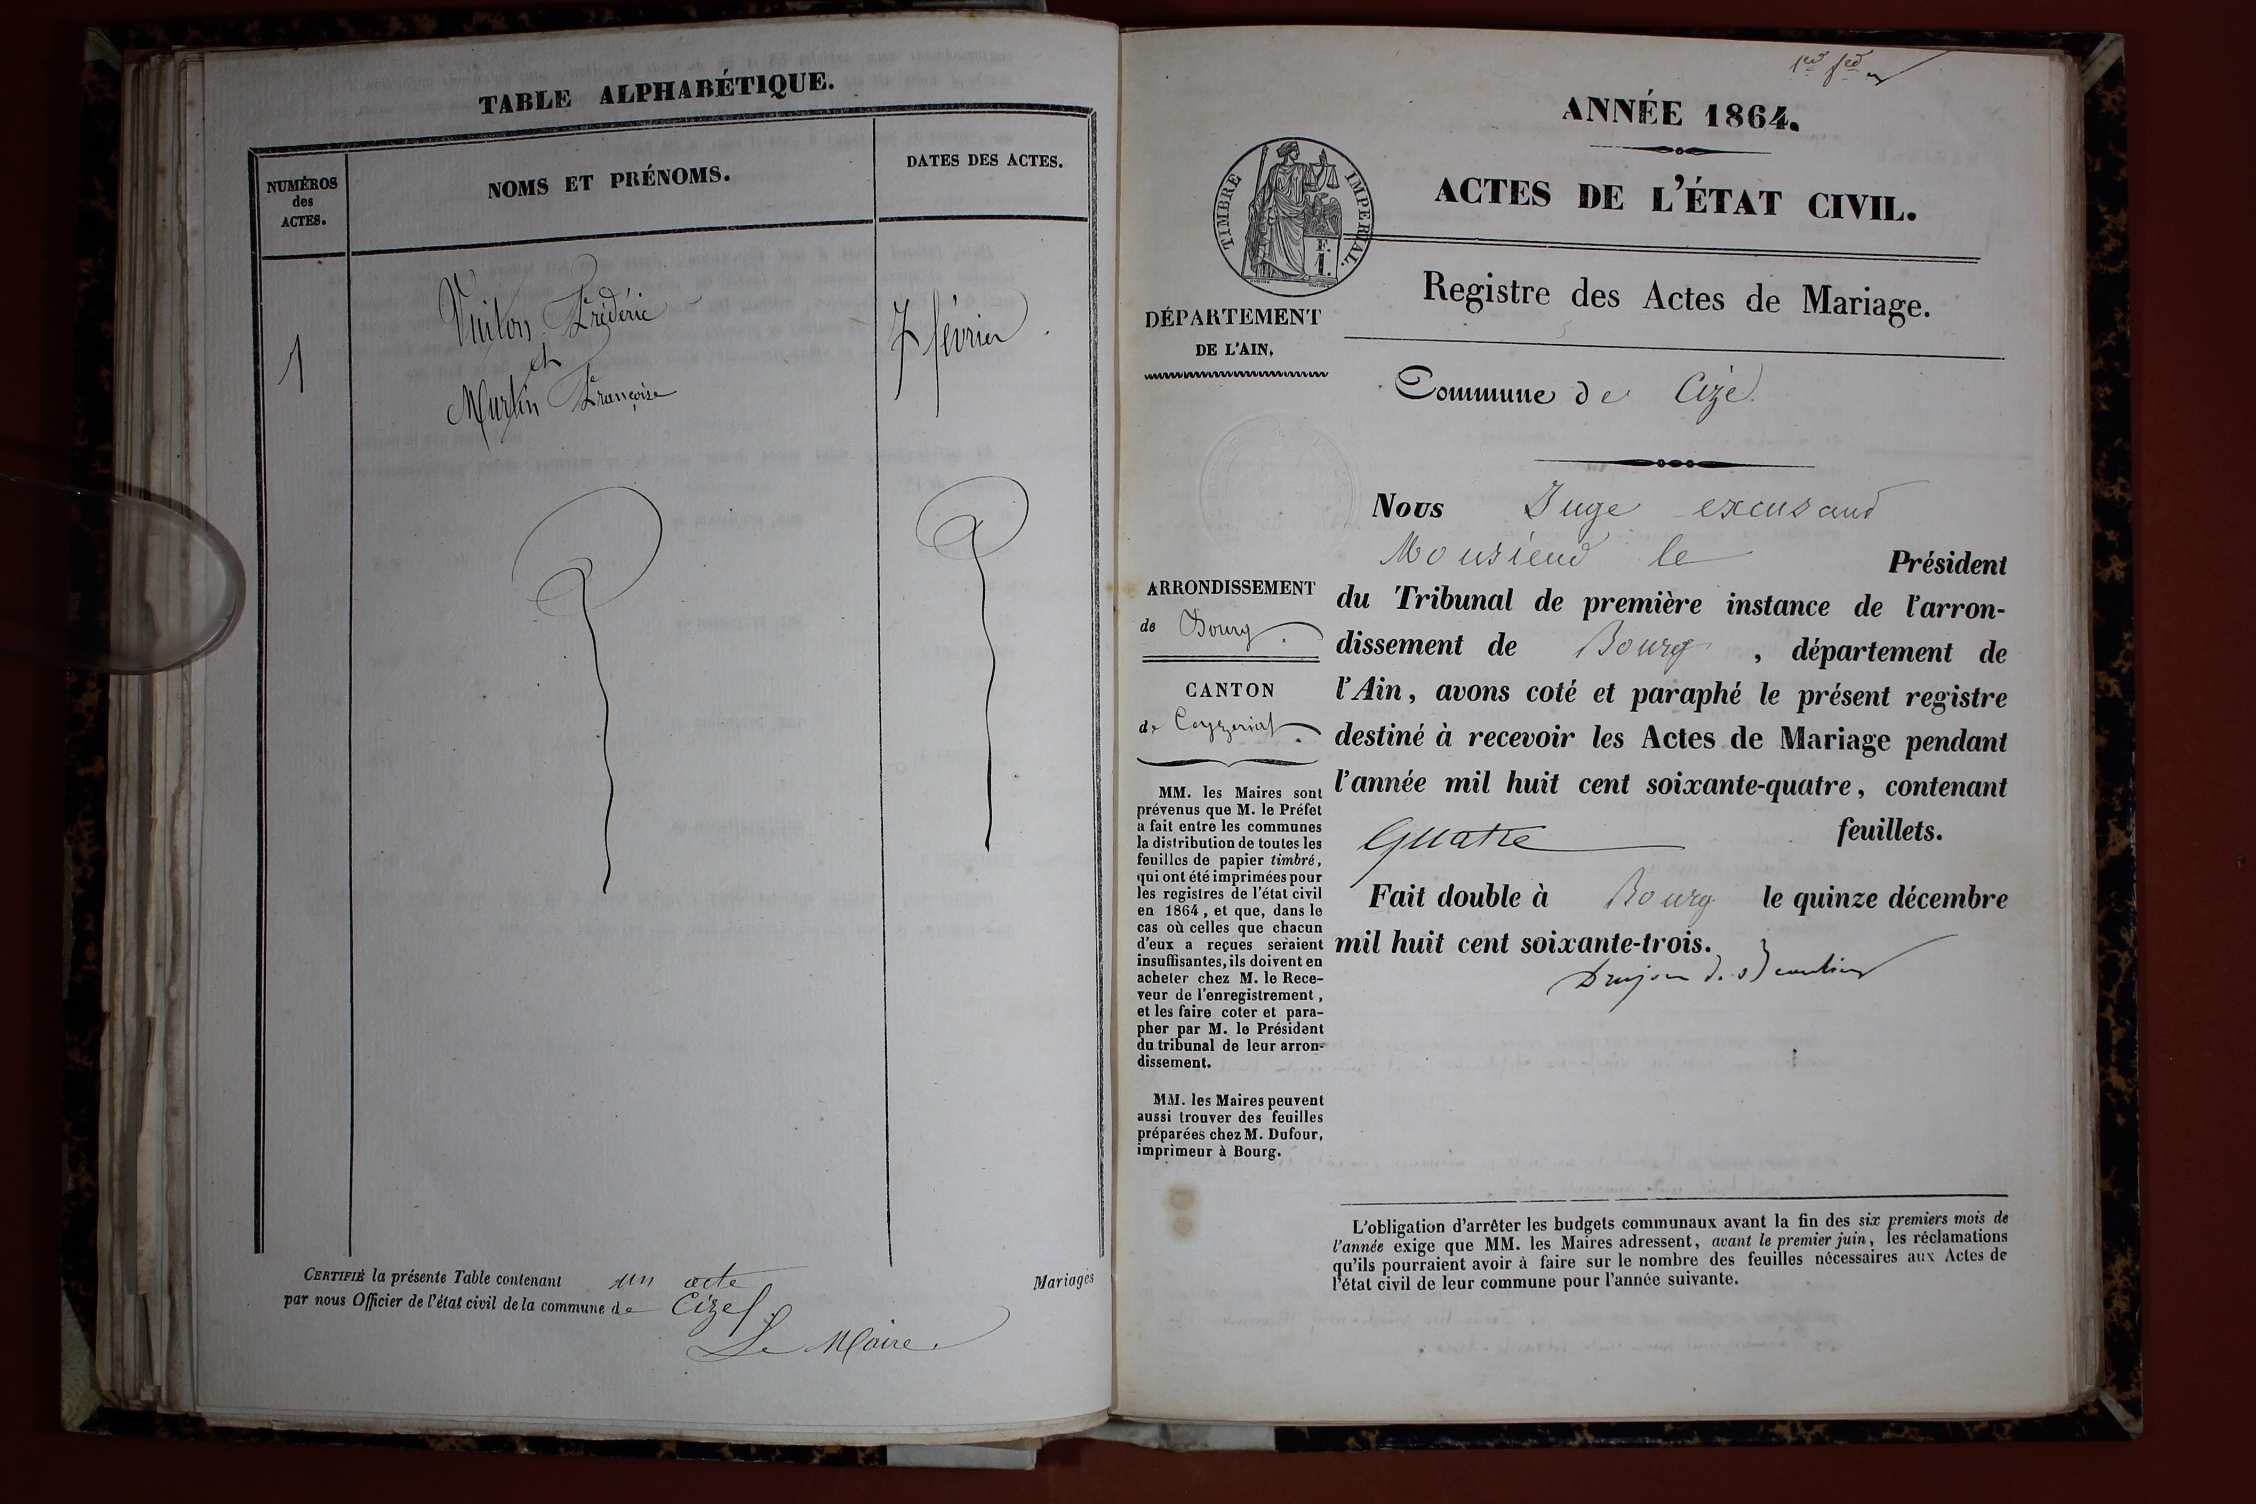 TABLE ALPHABÉTIQUE.
NUMÉROS
des
ACTES.
NOMS ET PRÉNOMS.
DATES DES ACTES.
1
Vuiton Frédéric
et
Martin Françoise
7 février
CERTIFIÉ la présente Table contenant un acte Mariages
par nous Officier de l'état civil de la commune de Cize
Le Maire
ANNÉE 1864.
ACTES DE L'ÉTAT CIVIL.
TIMBRE IMPÉRIAL.
F.
1.
Registre des Actes de Mariage.
DÉPARTEMENT
DE L'AIN.
Commune de Cize
ARRONDISSEMENT
de Bourg.
CANTON
de Ceyzeriat.
MM. les Maires sont
prévenus que M. le Préfet
a fait entre les communes
la distribution de toutes les
feuilles de papier timbré,
qui ont été imprimées pour
les registres de l'état civil
en 1864, et que, dans le
cas où celles que chacun
d'eux a reçues seraient
insuffisantes, ils doivent en
acheter chez M. le Rece-
veur de l'enregistrement,
et les faire coter et para-
pher par M. le Président
du tribunal de leur arron-
dissement.
MM. les Maires peuvent
aussi trouver des feuilles
préparées chez M. Dufour,
imprimeur à Bourg.
Nous Juge excusant
Monsieur le Président
du Tribunal de première instance de l'arron-
dissement de Bourg, département de
l'Ain, avons coté et paraphé le présent registre
destiné à recevoir les Actes de Mariage pendant
l'année mil huit cent soixante-quatre, contenant
Quatre feuillets.
Fait double à Bourg le quinze décembre
mil huit cent soixante-trois.
L'obligation d'arrêter les budgets communaux avant la fin des six premiers mois de
l'année exige que MM. les Maires adressent, avant le premier juin, les réclamations
qu'ils pourraient avoir à faire sur le nombre des feuilles nécessaires aux Actes de
l'état civil de leur commune pour l'année suivante.